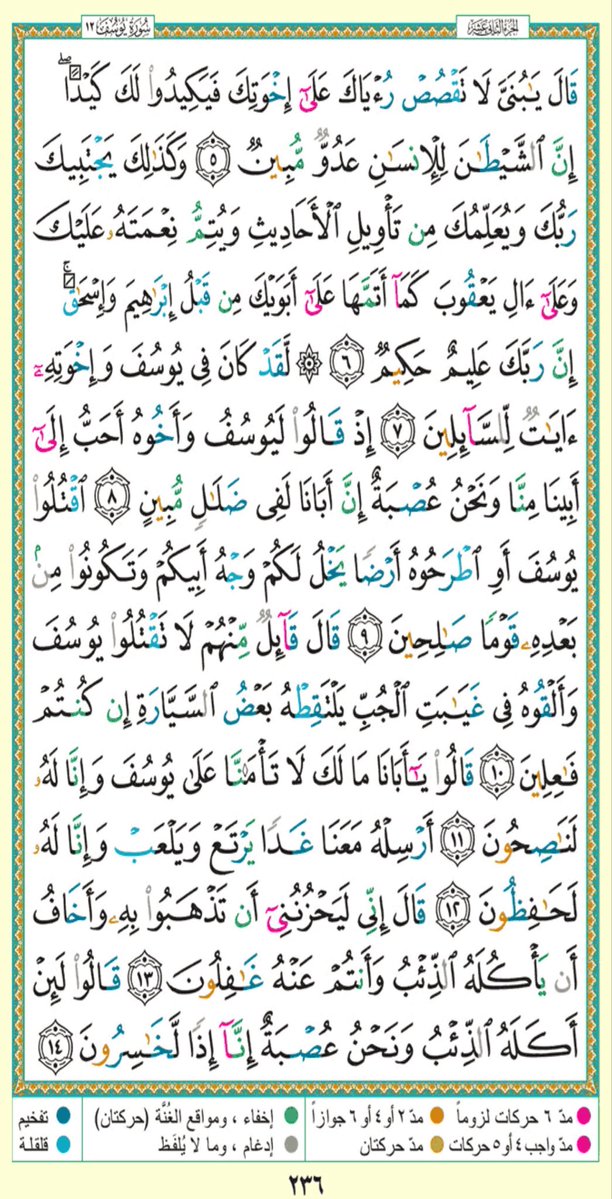 سُورَةُ يُوسُفَ ١٢
الجزء الثاني عشر
قَالَ يَـٰبُنَىَّ لَا تَقْصُصْ رُءْيَاكَ عَلَىٰٓ إِخْوَتِكَ فَيَكِيدُوا۟ لَكَ كَيْدًا ۖ
إِنَّ ٱلشَّيْطَـٰنَ لِلْإِنسَـٰنِ عَدُوٌّ مُّبِينٌ ٥ وَكَذَٰلِكَ يَجْتَبِيكَ
رَبُّكَ وَيُعَلِّمُكَ مِن تَأْوِيلِ ٱلْأَحَادِيثِ وَيُتِمُّ نِعْمَتَهُۥ عَلَيْكَ
وَعَلَىٰٓ ءَالِ يَعْقُوبَ كَمَآ أَتَمَّهَا عَلَىٰٓ أَبَوَيْكَ مِن قَبْلُ إِبْرَٰهِيمَ وَإِسْحَـٰقَ ۚ
إِنَّ رَبَّكَ عَلِيمٌ حَكِيمٌ ٦ ۞ لَّقَدْ كَانَ فِى يُوسُفَ وَإِخْوَتِهِۦٓ
ءَايَـٰتٌ لِّلسَّآئِلِينَ ٧ إِذْ قَالُوا۟ لَيُوسُفُ وَأَخُوهُ أَحَبُّ إِلَىٰٓ
أَبِينَا مِنَّا وَنَحْنُ عُصْبَةٌ إِنَّ أَبَانَا لَفِى ضَلَـٰلٍ مُّبِينٍ ٨ ٱقْتُلُوا۟
يُوسُفَ أَوِ ٱطْرَحُوهُ أَرْضًا يَخْلُ لَكُمْ وَجْهُ أَبِيكُمْ وَتَكُونُوا۟ مِنۢ
بَعْدِهِۦ قَوْمًا صَـٰلِحِينَ ٩ قَالَ قَآئِلٌ مِّنْهُمْ لَا تَقْتُلُوا۟ يُوسُفَ
وَأَلْقُوهُ فِى غَيَـٰبَتِ ٱلْجُبِّ يَلْتَقِطْهُ بَعْضُ ٱلسَّيَّارَةِ إِن كُنتُمْ
فَـٰعِلِينَ ١٠ قَالُوا۟ يَـٰٓأَبَانَا مَا لَكَ لَا تَأْمَ۫نَّا عَلَىٰ يُوسُفَ وَإِنَّا لَهُۥ
لَنَـٰصِحُونَ ١١ أَرْسِلْهُ مَعَنَا غَدًا يَرْتَعْ وَيَلْعَبْ وَإِنَّا لَهُۥ
لَحَـٰفِظُونَ ١٢ قَالَ إِنِّى لَيَحْزُنُنِىٓ أَن تَذْهَبُوا۟ بِهِۦ وَأَخَافُ
أَن يَأْكُلَهُ ٱلذِّئْبُ وَأَنتُمْ عَنْهُ غَـٰفِلُونَ ١٣ قَالُوا۟ لَئِنْ
أَكَلَهُ ٱلذِّئْبُ وَنَحْنُ عُصْبَةٌ إِنَّآ إِذًا لَّخَـٰسِرُونَ ١٤
مدّ ٦ حركات لزوماً مدّ ٢ أو ٤ أو ٦ جوازاً إخفاء ، ومواقع الغُنَّة (حركتان) تفخيم
مدّ واجب ٤ أو ٥ حركات مدّ حركتان إدغام ، وما لا يُلفَظ قلقلة
٢٣٦